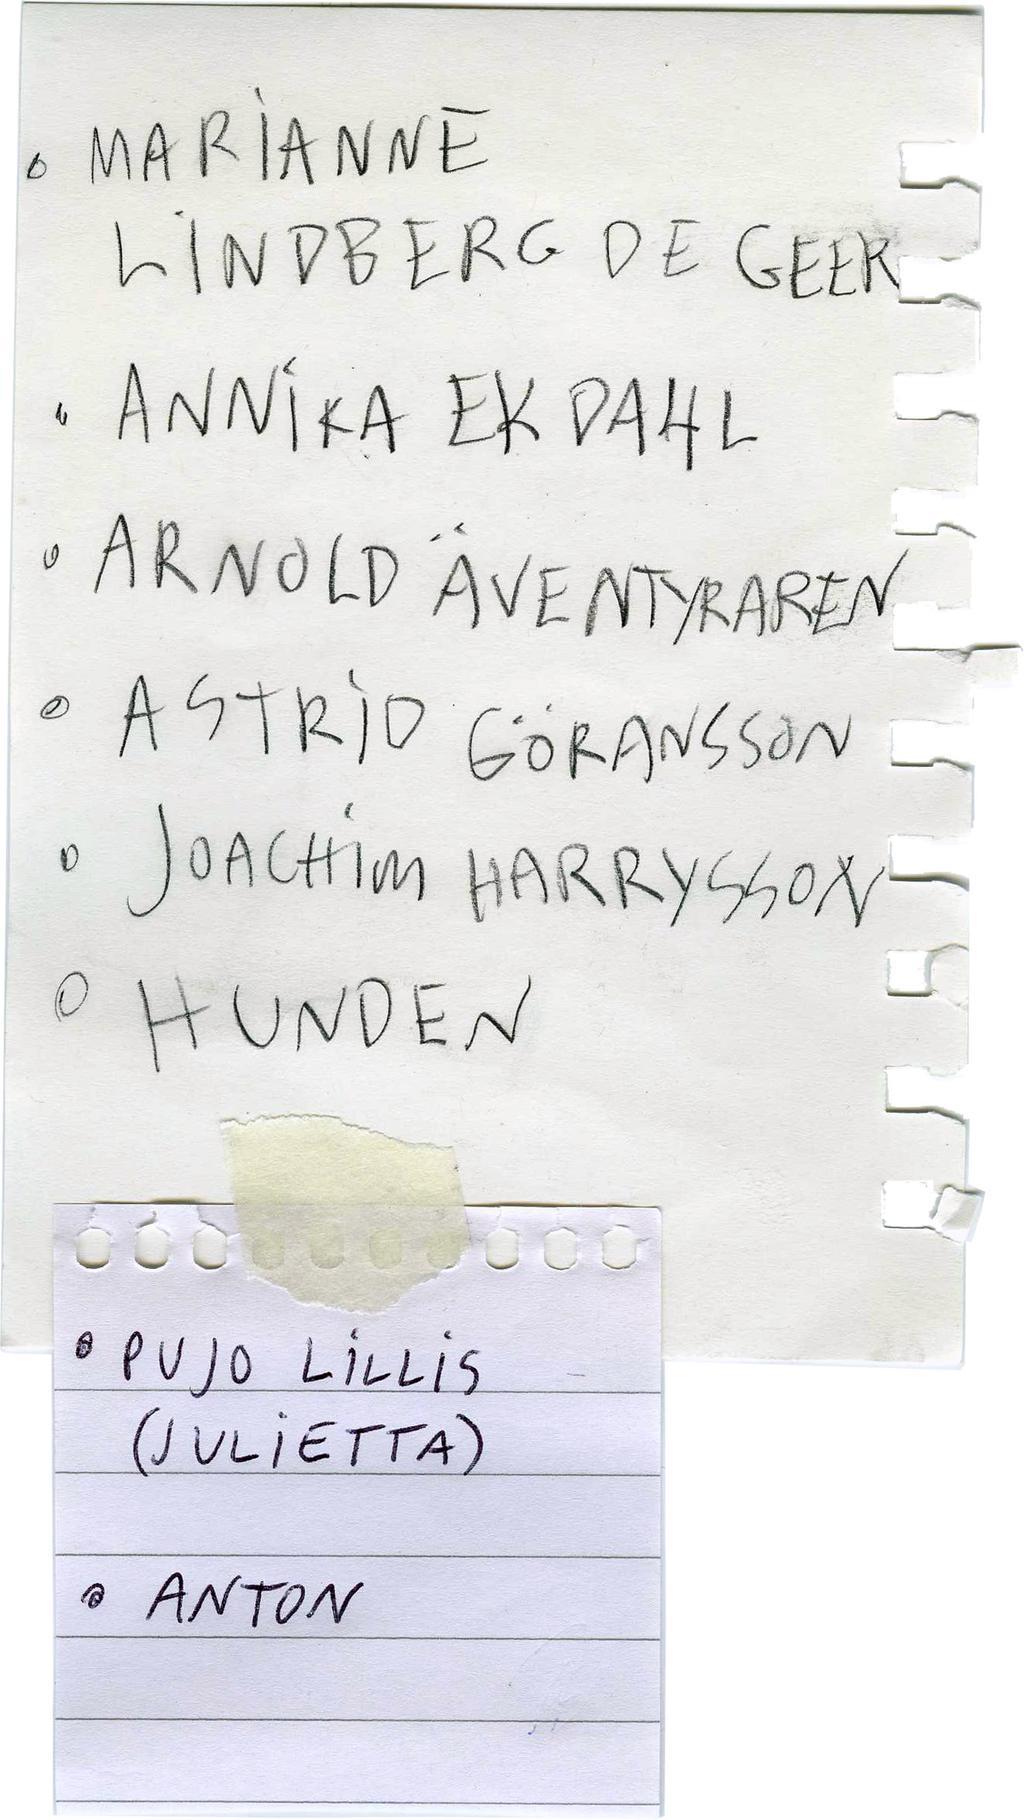 • MARIANNE
LINDBERG DE GEER
• ANNIKA EKDAHL
• ARNOLD ÄVENTYRAREN
• ASTRID GÖRANSSON
• JOACHIM HARRYSSON
• HUNDEN
• PUJO LILLIS
(JULIETTA)
• ANTON